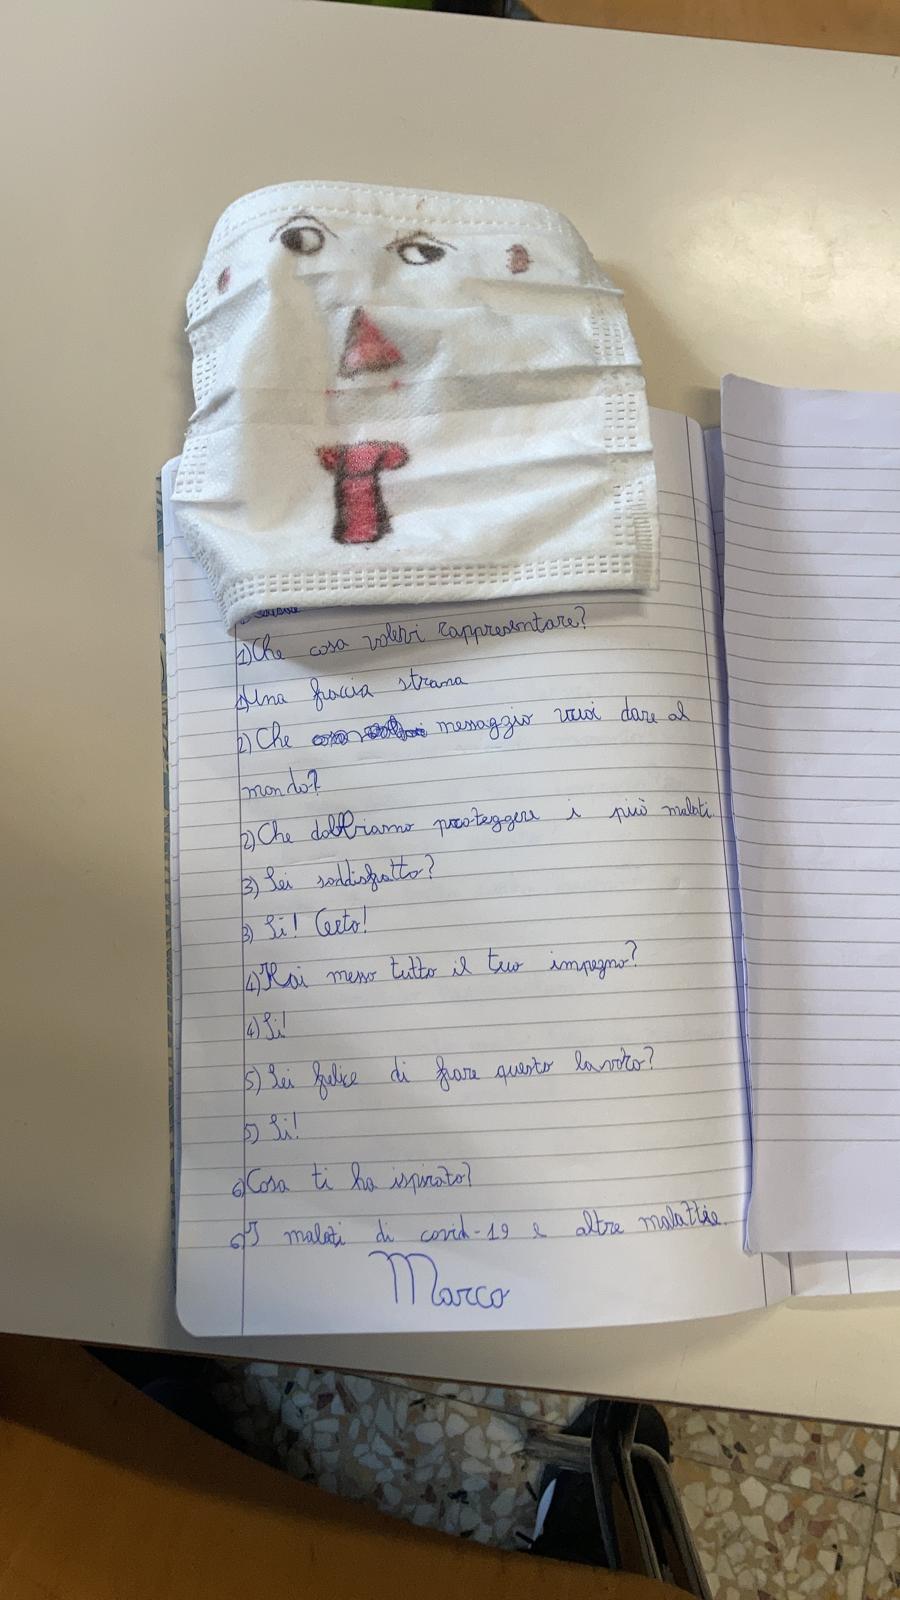 1) Che cosa volevi rappresentare?
1) Una faccia strana
2) Che messaggio vuoi dare al
mondo?
2) Che dobbiamo proteggere i più malati.
3) Sei soddisfatto?
3) Si! Certo!
4) Hai messo tutto il tuo impegno?
4) Si!
5) Sei felice di fare questo lavoro?
5) Si!
6) Cosa ti ha ispirato?
6) I malati di covid-19 e altre malattie.
Marco